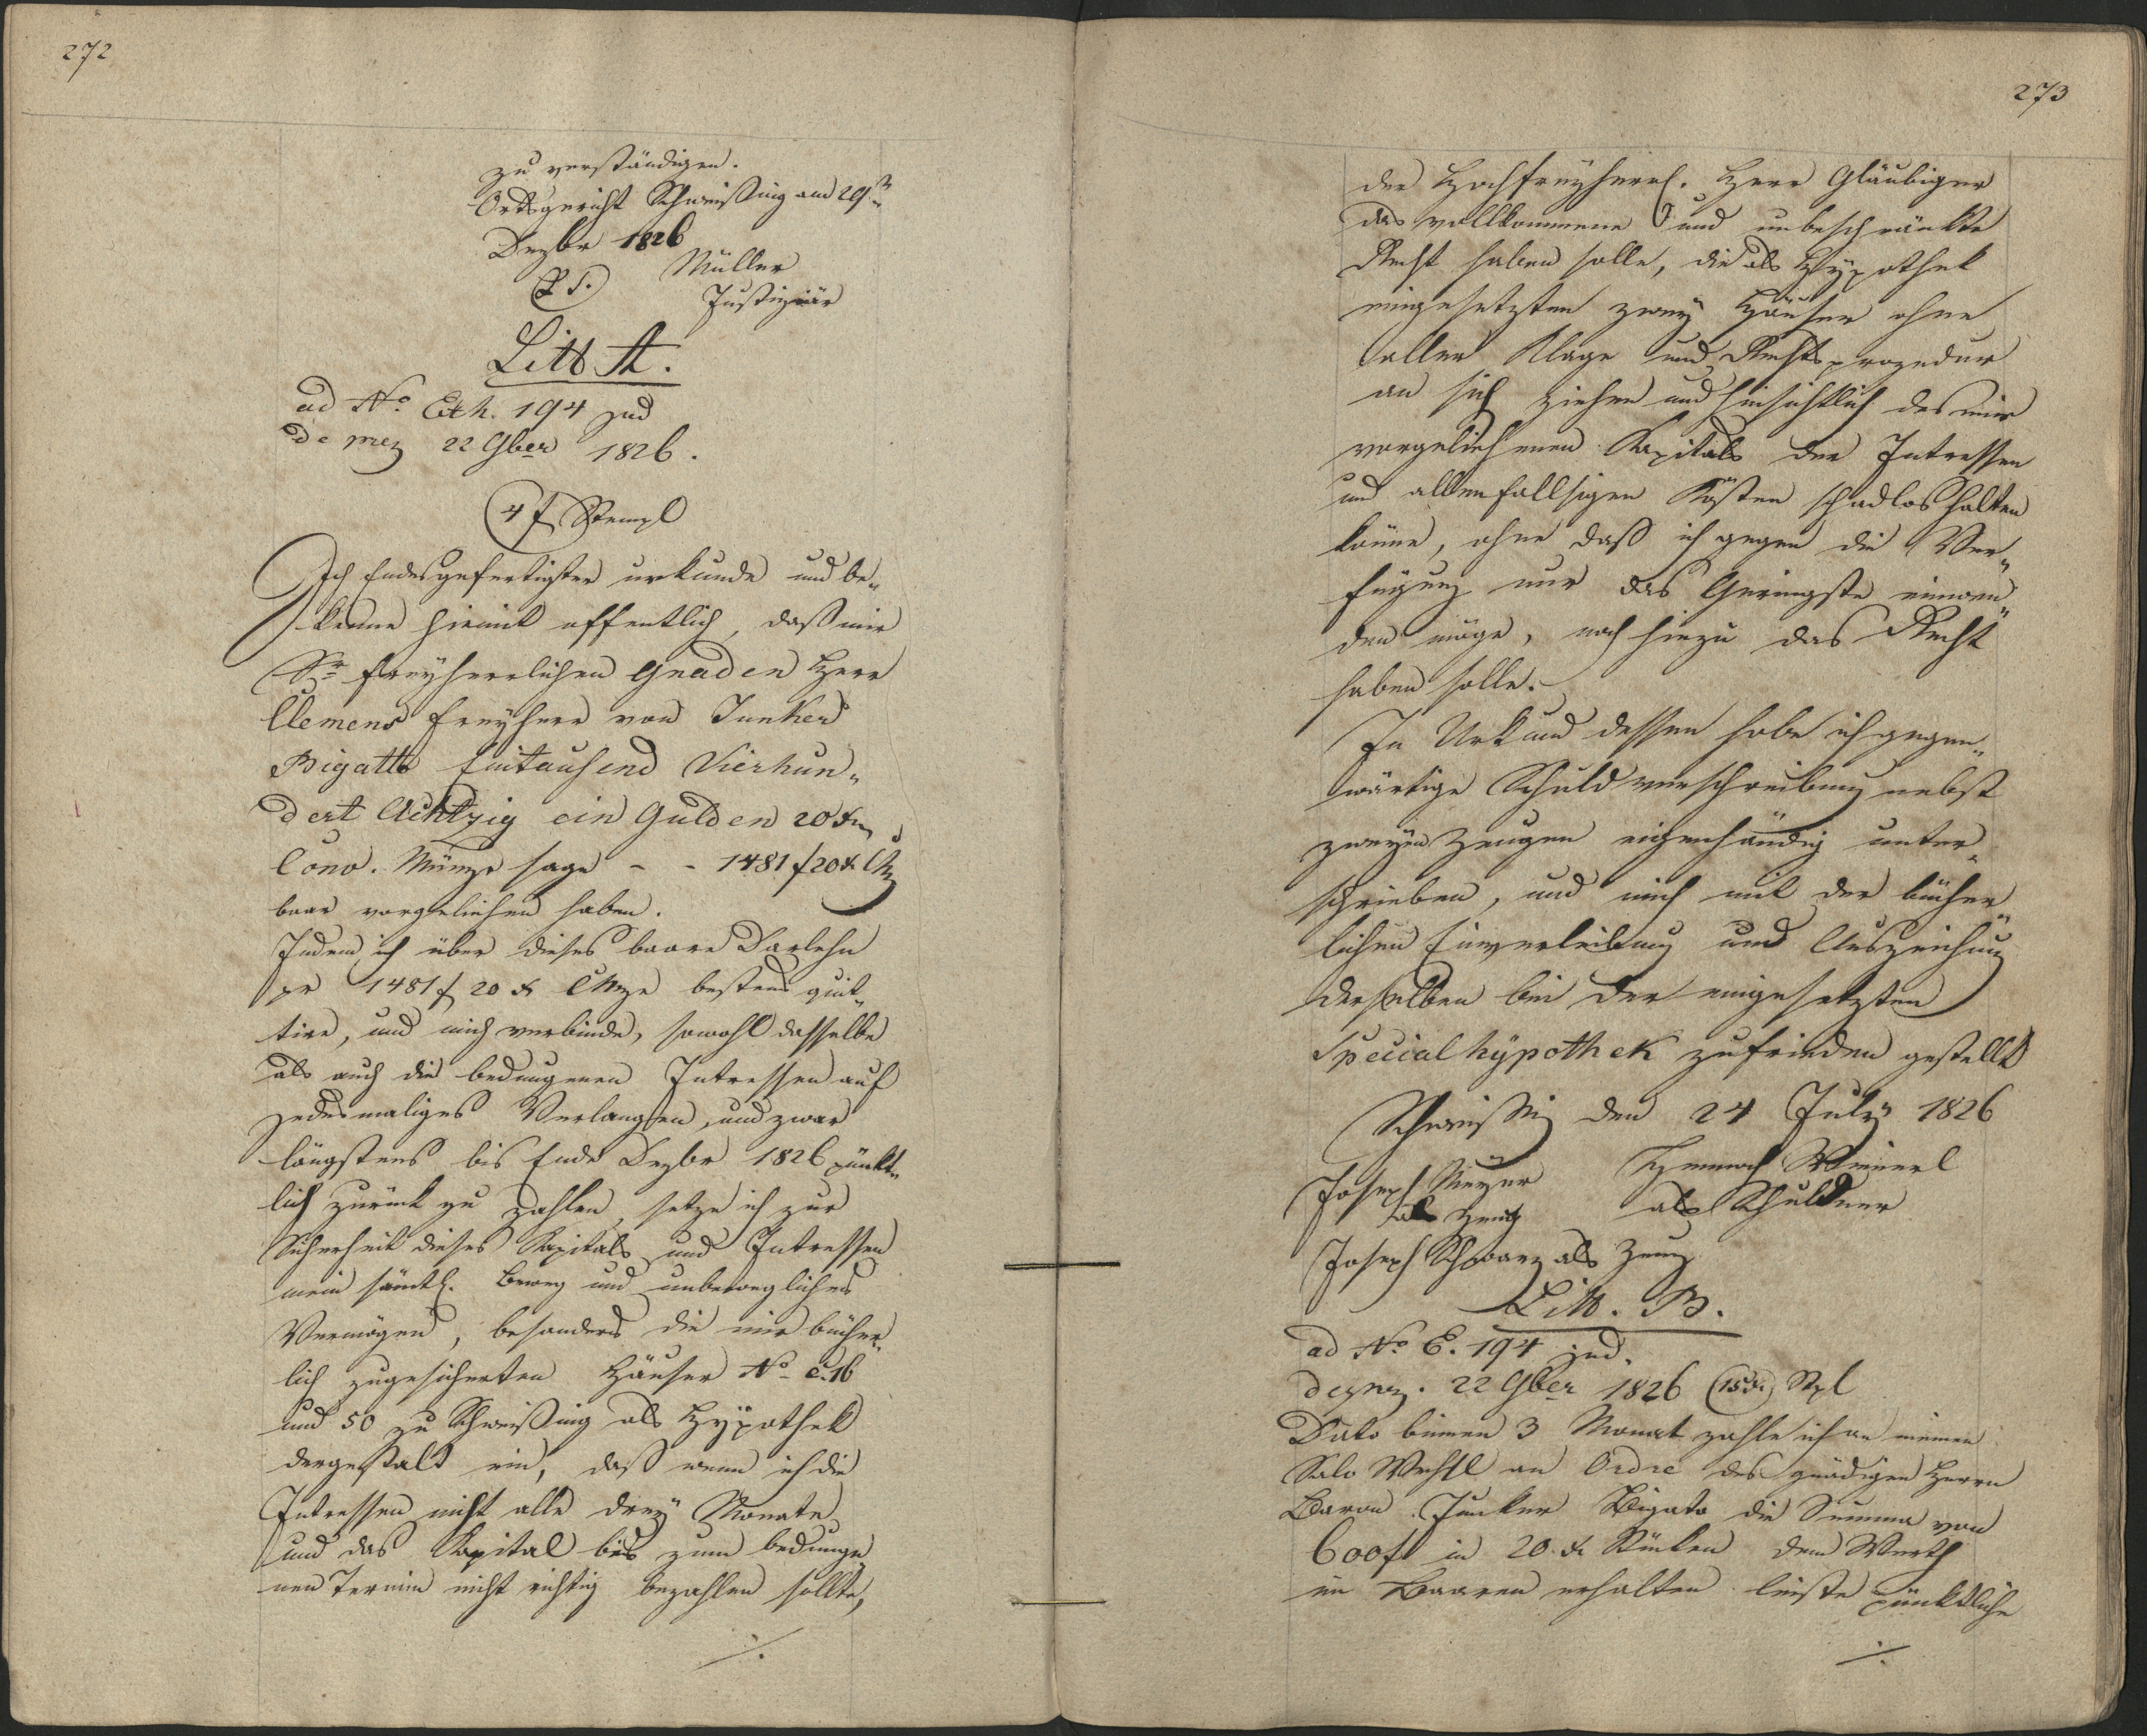 272
zu verständigen.
Ortsgericht Schweißing am 29tn
Dezbr 1826
(L. S.) Müller
Justiziär
Litt A.
ad No. Exh. 194 jud
de prez 22 9ber 1826.
(4 f Stempl
Ich Endesgefertigter urkunde und be„
kenne hiemit offentlich, daß mir
Sr freyherrlichen Gnaden Herr
Clemens Freyherr von Junker
Bigatto Eintausend Vierhun„
dert Achtzig ein Gulden 20 xr
Conv. Münze sage - - 1481 f 20 x CM
baar vorgeliehen haben.
Indem ich über dieses baare Darlehn
pr 1481 f 20 x CMze bestens quit„
tire, und mich verbinde, sowohl dasselbe
als auch die bedungenen Intressen auf
jedesmaliges Verlangen, und zwar
längstens bis Ende Dezbr 1826 pünkt„
lich zurück zu zahlen, setze ich zur
Sicherheit dieses Kapitals und Intressen
mein sämtl. Beweg und unbewegliches
Vermögen, besonders die mir bücher„
lich zugesicherten Häuser No C. 16
und 50 zu Schweißing als Hypothek
dergestalt ein, daß wenn ich die
Intressen nicht alle drey Monate
und das Kapital bis zum bedunge„
nen Termin nicht richtig bezahlen sollte,
./.
273
der Hochfreyherrl. Herr Gläubiger
das vollkommene und unbeschränkte
Recht haben solle, die als Hypothek
eingesetzten zwey Häuser ohne
aller Klage und Rechtsprozedur
an sich ziehen und hinsichtlich des mir
vorgeliehenen Kapitals der Intressen
und allenfallsigen Kösten schadlos halten
könne, ohne daß ich gegen die Ver„
fügung nur das Geringste einwen„
den möge, noch hiezu das Recht
haben solle.
In Urkund dessen habe ich gegen„
wärtige Schuldverschreibung nebst
zweyen Zeugen eigenhändig unter„
schrieben, und mich mit der bücher„
lichen Einverleibung und Auszeichnung
derselben bei der eingesetzten
Specialhypothek zufrieden gestellt
Schweißing den 24 July 1826
Joseph Meyer
als Schuldner
als Zeug
Joseph Schwarz als Zeug
Litt. B.
ad No E. 194 jud.
de prez. 22 9ber 1826 (15 xr) Stpl
Dato binnen 3 Monat zahle ich an meinen
Solo Wechsl an Ordre des gnädigen Herrn
Baron Junker Bigato die Summa von
600 f in 20 x Stücken dem Werth
im Baaren erhalten leiste pünktliche
./.